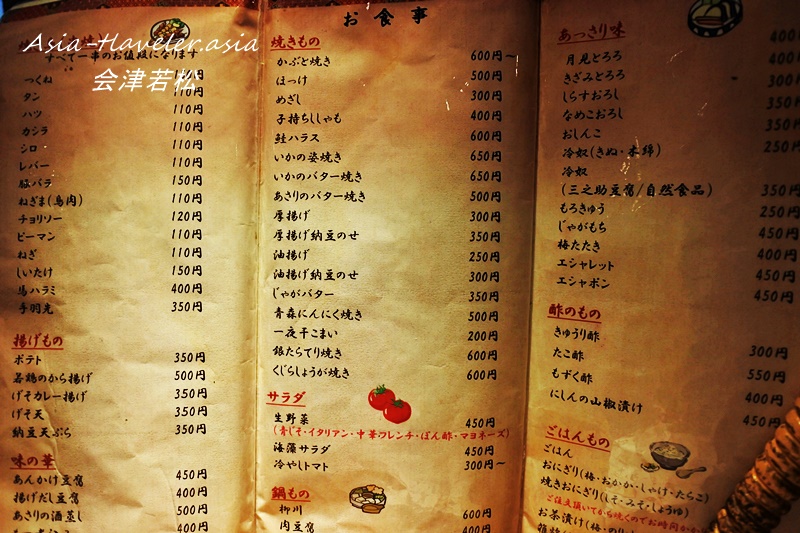 お食事
Asia-Haveler.asia
会津若松
すべて一串のお値段になります
つくね 110円
タン 110円
ハツ 110円
カシラ 110円
シロ 110円
レバー 110円
豚バラ 150円
ねぎま(鳥肉) 110円
チョリソー 120円
ピーマン 110円
ねぎ 110円
しいたけ 150円
馬ハラミ 400円
手羽先 350円
揚げもの
ポテト 350円
若鶏のから揚げ 500円
げそカレー揚げ 350円
げそ天 350円
納豆天ぷら 350円
味の華
あんかけ豆腐 450円
揚げだし豆腐 400円
あさりの酒蒸し 500円
400円
焼きもの
かぶと焼き 600円~
ほっけ 500円
めざし 300円
子持ちししゃも 400円
鮭ハラス 600円
いかの姿焼き 650円
いかのバター焼き 650円
あさりのバター焼き 500円
厚揚げ 300円
厚揚げ納豆のせ 350円
油揚げ 250円
油揚げ納豆のせ 300円
じゃがバター 350円
青森にんにく焼き 500円
一夜干こまい 200円
銀たらてり焼き 600円
くじらしょうが焼き 600円
サラダ
生野菜 450円
(青じそ・イタリアン・中華フレンチ・ぽん酢・マヨネーズ)
海藻サラダ 450円
冷やしトマト 300円~
鍋もの
柳川 600円
肉豆腐 400円
あっさり味
月見とろろ 400円
きざみとろろ 300円
しらすおろし 350円
なめこおろし 350円
おしんこ 350円
冷奴(きぬ・木綿) 250円
冷奴
(三之助豆腐/自然食品) 350円
もろきゅう 250円
じゃがもち 450円
梅たたき 400円
エシャレット 450円
エシャポン 450円
酢のもの
きゅうり酢 300円
たこ酢 550円
もずく酢 400円
にしんの山椒漬け 450円
ごはんもの
ごはん
おにぎり(梅・おかか・しゃけ・たらこ)
焼きおにぎり(しそ・みそ・しょうゆ)
ご注文頂いてから焼くのでお時間が
お茶漬け(梅・のり